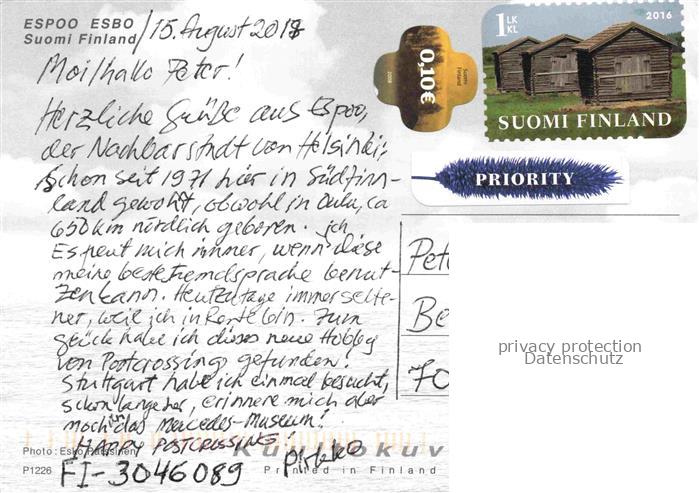 ESPOO ESBO
Suomi Finland / 15. August 2017
Moi/hallo Peter!
Herzliche Grüße aus Espoo,
der Nachbarstadt von Helsinki;
schon seit 1971 hier in Südfinn-
land gewohnt, obwohl in Oulu, ca
650 km nördlich geboren. ich
Es freut mich immer, wenn diese
meine beste Fremdsprache benut-
zen kann. Heutzutage immer selte-
ner, weil ich in Rente bin. Zum
Glück habe ich dieses neue Hobby
von Postcrossing gefunden!
Stuttgart habe ich einmal besucht,
schon lange her, erinnere mich aber
noch an das Mercedes-Museum!
HAPPY POSTCROSSING!
Pirkko
Photo: Esko
P1226
FI-3046089
Printed in Finland
0,10€
Suomi
Finland
1 LK
KL
2016
SUOMI FINLAND
PRIORITY
Pet
Be
70
privacy protection
Datenschutz